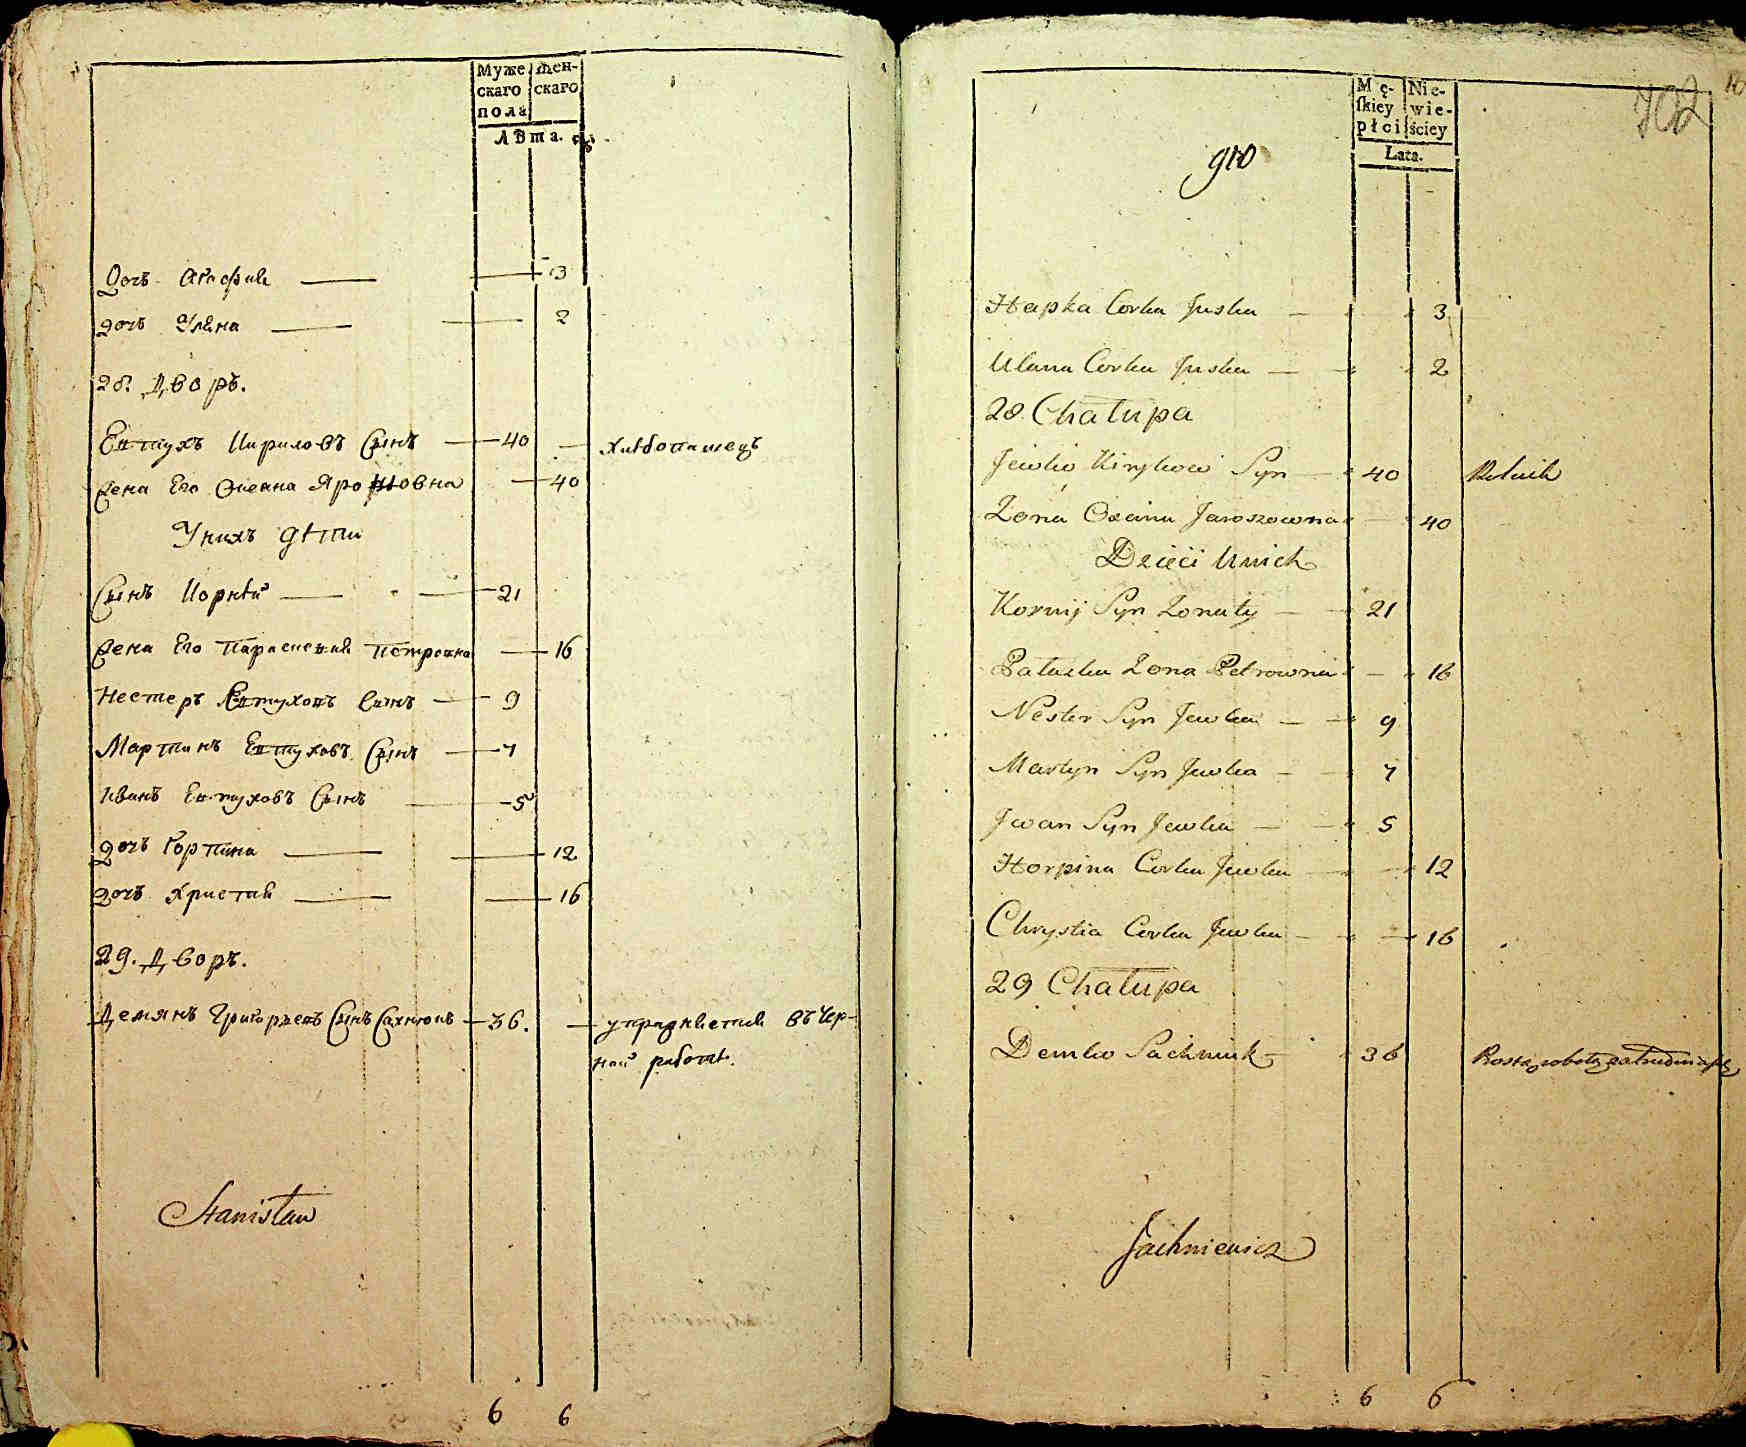 Муже
скаго
пола
жен-
скаго
лѣта.
Дочь Агафия 3
дочь Уляна 2
28. Дворъ.
Евтухъ Кириловъ Сынъ 40 хлѣбопашецъ
Жена Его Оксана Ярошовна 40
У нихъ дѣти
Сынъ Корнѣй 21
Жена Его Параскевия Петровна 16
Нестеръ Евтуховъ Сынъ 9
Мартинъ Евтуховъ Сынъ 7
Иванъ Евтуховъ Сынъ 5
дочь Горпина 12
дочь Христия 16
29. Дворъ.
Демянъ Григорьевъ Сынъ Сахнюкъ 36. упражняется въ чер-
ной работѣ.
Stanisław
6 6
Mę-
ſkiey
płci
Nie-
wie-
ściey
Lata.
702
910
Hapka Corka Juska 3
Ulana Corka Juska 2
28 Chałupa
Jewko Kiryłow Syn 40 Rolnik
Zona Oxana Jaroszowna 40
Dzieci Unich
Kornij Syn Zonaty 21
Paraska Zona Petrowna 16
Nester Syn Jewka 9
Martyn Syn Jewka 7
Jwan Syn Jewka 5
Horpina Corka Jewka 12
Chrystia Corka Jewka 16
29 Chałupa
Demko Sachniuk 36 Prostą robotą zatrudnia się
Jachniewicz
6 6